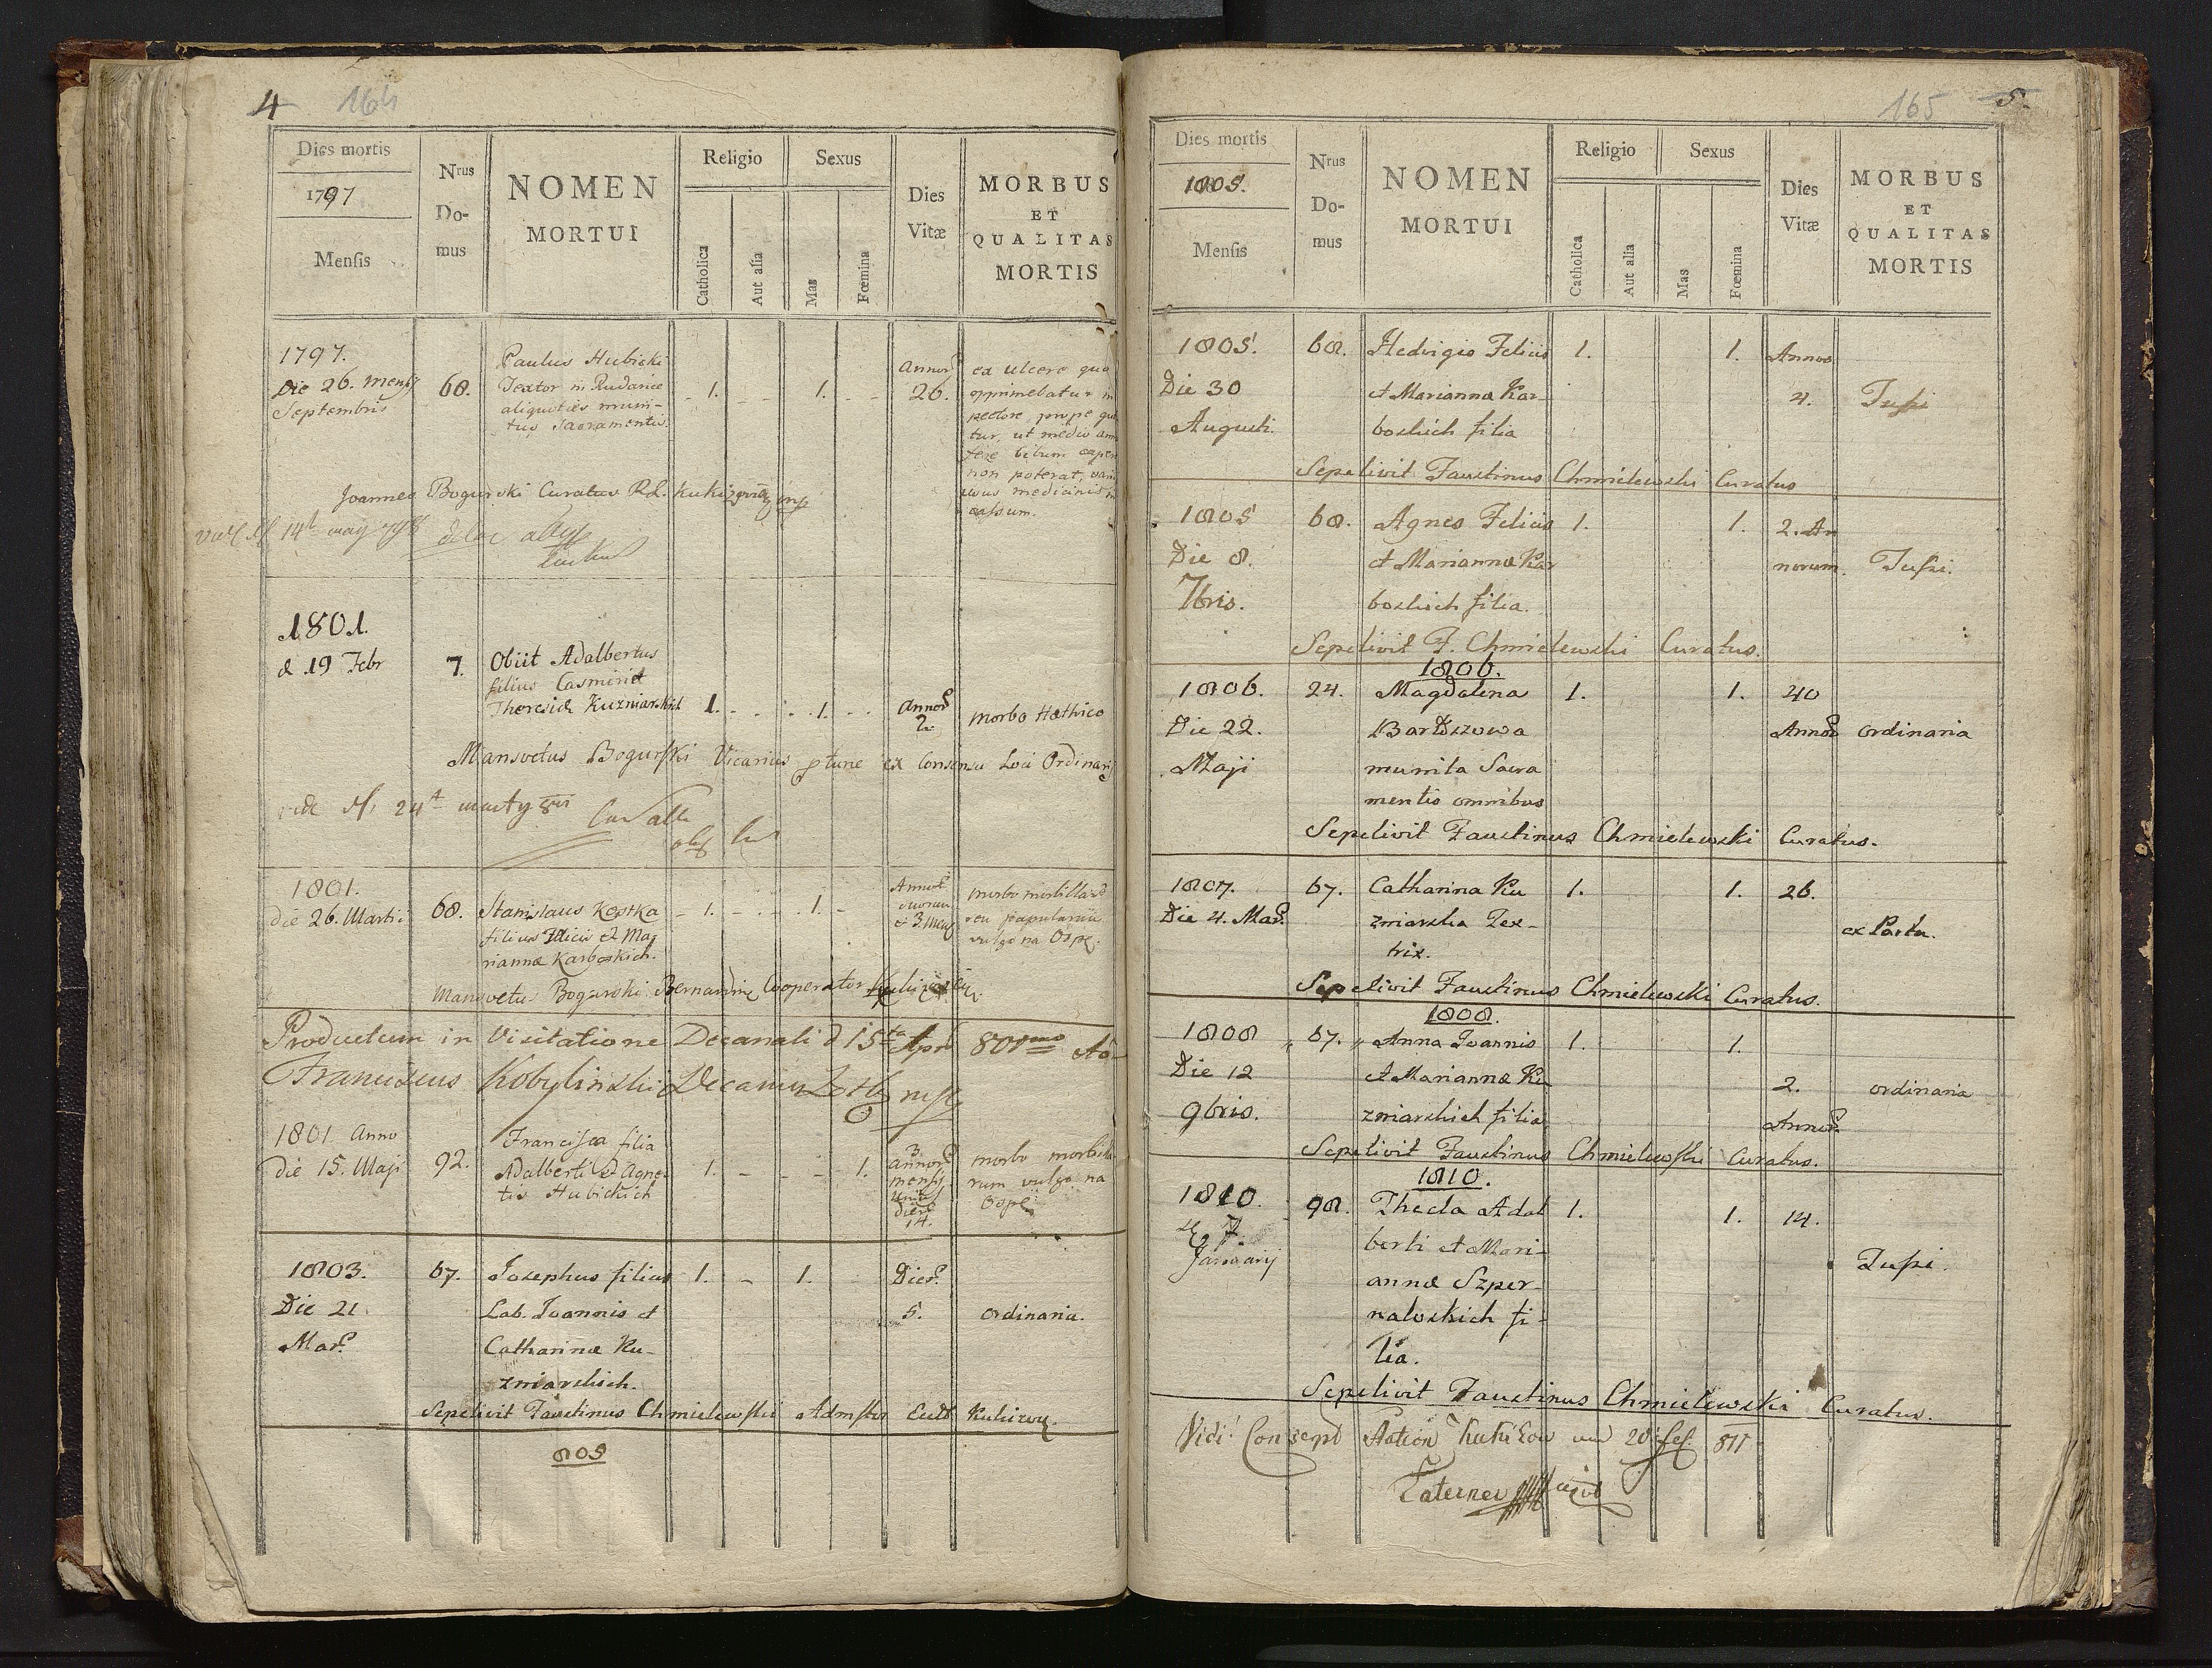 4 164
Dies mortis
1797
Mensis
Nrus
Do-
mus
NOMEN
MORTUI
Religio
Catholica
Aut alia
Sexus
Mas
Fœmina
Dies
Vitæ
MORBUS
ET
QUALITAS
MORTIS
1797.
Die 26. mensis
Septembris
68.
Paulus Hubicki
Textor in Rudance
aliquoties muni-
tus Sacramentis.
1.
1.
Annor
26.
ex ulcere quo
opprimebatur in
pectore, prope
tur, ut medio
fere cibum
non poterat,
medicinis
cassum.
Joannes Bogurski Curatus
14ta maij 798
1801.
d 19 Febr
7.
Obiit Adalbertus
filius Casimiri et
Theresiæ Kuzniarskich
1.
1.
Annor
2.
Morbo Hethico
Mansvetus Bogurski Vicarius ptunc ex Consensu Loci Ordinarij
24ta
1801.
die 26. Martii
68.
Stanislaus Kostka
filius Felicis et Ma
riannæ Karboskich.
1.
1.
Annor
duorum
et 3. mens
morbo
seu papularum
vulgo na Ospę.
Mansvetus Bogurski Bernardin Cooperator
Productum in Visitatione Decanali d 15ta Apr 801mo Ao
Franciscus Kobylinski Decanus
1801 Anno
die 15. Maji
92.
Francisca filia
Adalberti et Agne-
tis Hubickich
1.
1.
3.
annor
mensis
unius
dier
14.
morbo morbil
rum vulgo na
Ospę
1803.
Die 21
Mar.
67.
Josephus filius
Lab. Joannis et
Catharinæ Ku-
zniarskich.
1.
1.
Dier.
5.
ordinaria.
Sepelivit Faustinus Chmielewski Admstor Eccl Kukizov.
805
165 5.
Dies mortis
1805.
Mensis
Nrus
Do-
mus
NOMEN
MORTUI
Religio
Catholica
Aut alia
Sexus
Mas
Fœmina
Dies
Vitæ
MORBUS
ET
QUALITAS
MORTIS
1805.
Die 30
Augusti.
68.
Hedvigis Felicis
et Mariannæ Kar-
boskich filia
1.
1.
Annor
4.
Tussi
Sepelivit Faustinus Chmielewski Curatus
1805
Die 8.
7bris.
68.
Agnes Felicis
et Mariannæ Kar
boskich filia.
1.
1.
2. An
norum.
Tussi.
Sepelivit F. Chmielewski Curatus.
1806.
1806.
Die 22.
Maji
24.
Magdalena
Bartoszowa
munita Sacra
mentis omnibus
1.
1.
40
Annor
ordinaria
Sepelivit Faustinus Chmielewski Curatus.
1807.
Die 4. Mar.
67.
Catharina Ku
zniarska Tex-
trix.
1.
1.
26.
ex Partu.
Sepelivit Faustinus Chmielewski Curatus.
1808.
1808
Die 12
9bris.
67.
Anna Joannis
et Mariannæ Ku
zniarskich filia
1.
1.
2.
Annor.
ordinaria
Sepelivit Faustinus Chmielewski Curatus.
1810.
1810.
7.
Januarij
98.
Thecla Adal
berti et Mari-
annæ Szper-
nalowskich fi-
lia.
1.
1.
14.
Tussi.
Sepelivit Faustinus Chmielewski Curatus.
Vidi